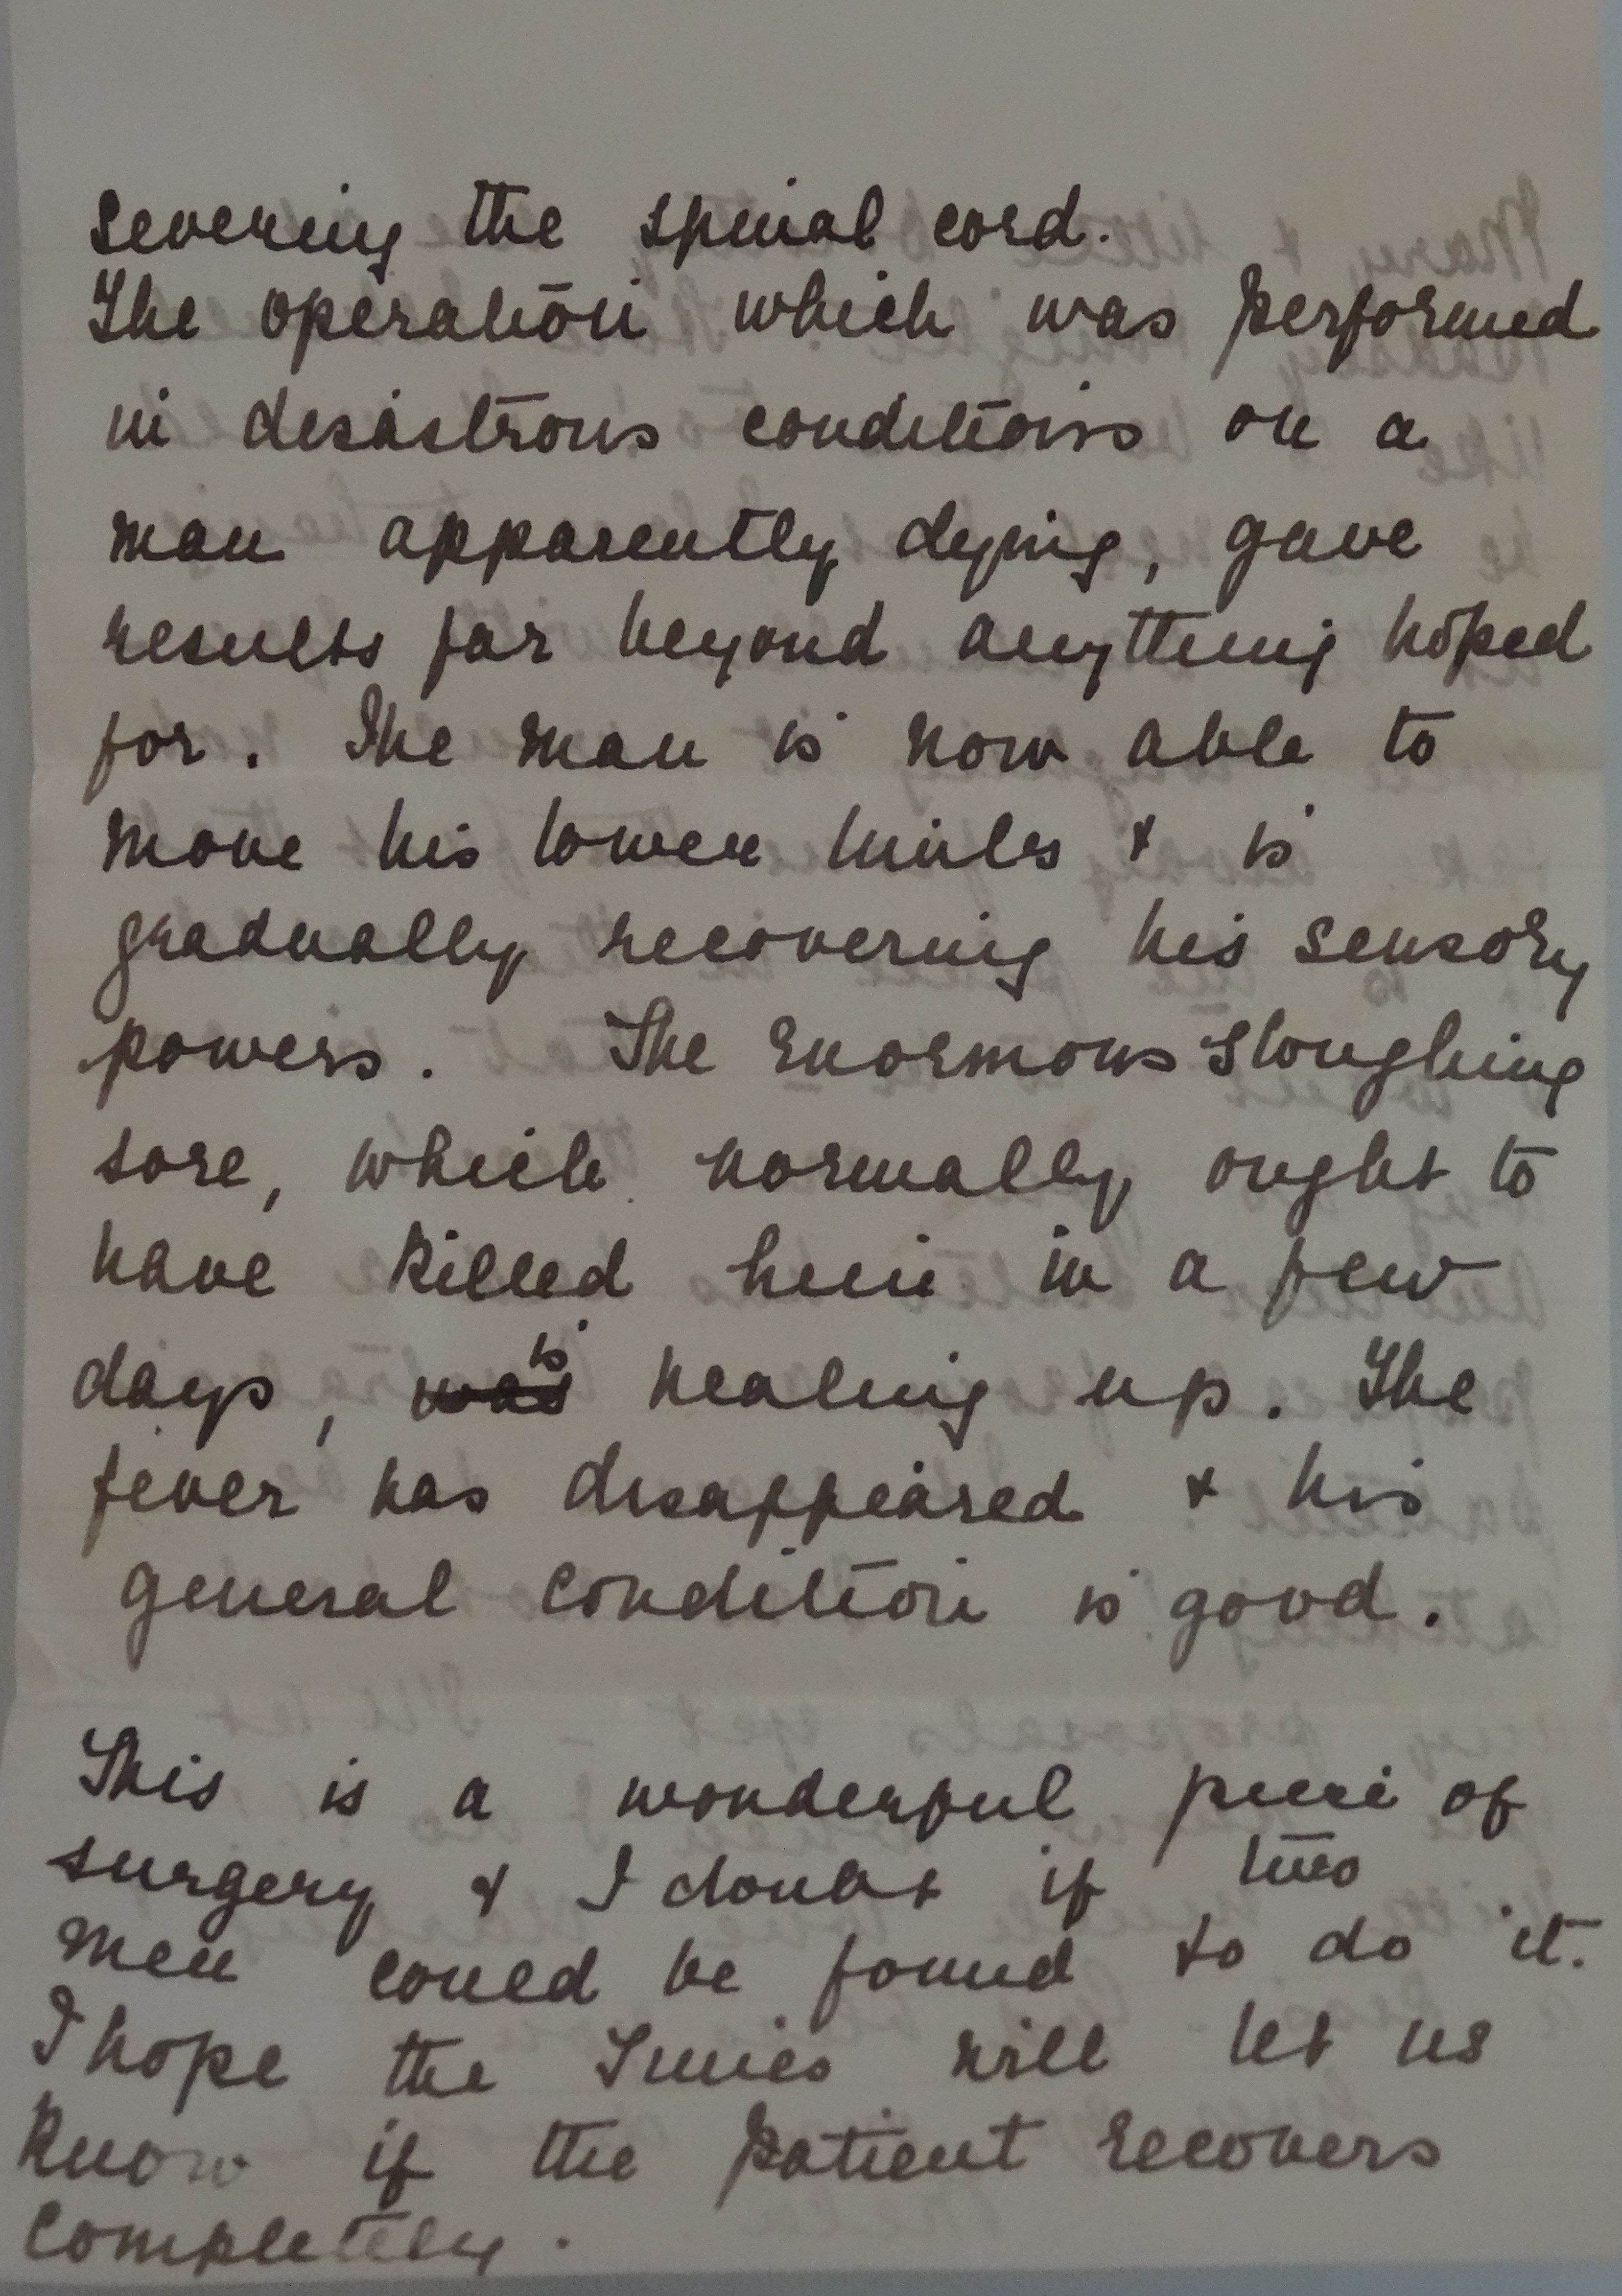 severing the spinal cord.
The operation which was performed
in desastrous conditions on a
man apparently dying, gave
results far beyond anything hoped
for. The man is now able to
move his lower limbs & is
gradually recovering his sensory
powers. The enormous sloughing
sore, which normally ought to
have killed him in a few
days, was is healing up. The
fever has disappeared & his
general condition is good.
This is a wonderful piece of
surgery & I doubt if two
men could be found to do it.
I hope the Times will let us
know if the patient recovers
completely.